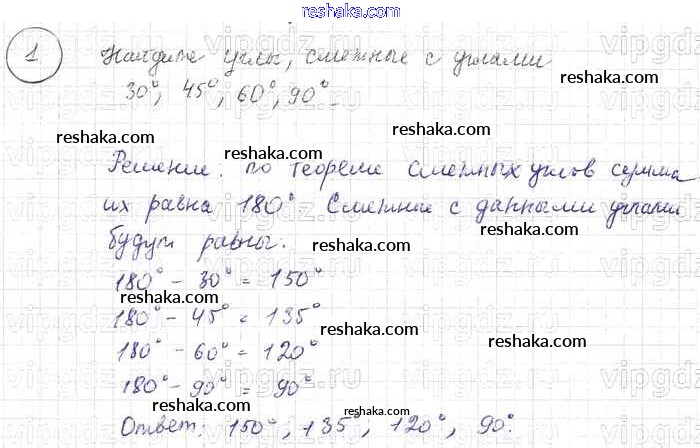 reshaka.com
1 Найдите углы, смежные с углами
30°, 45°, 60°, 90°.
reshaka.com reshaka.com
Решение: по теореме смежных углов сумма
reshaka.com reshaka.com
их равна 180° Смежные с данными углами
reshaka.com
будут равны:
180° - 30° = 150°
reshaka.com
180° - 45° = 135°
reshaka.com reshaka.com
180° - 60° = 120°
180° - 90° = 90°
reshaka.com reshaka.com
Ответ: 150°, 135°, 120°, 90°.
vipgdz.ru